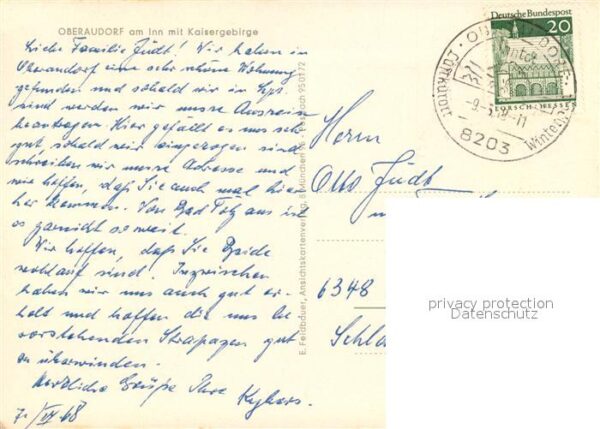 OBERAUDORF am Inn mit Kaisergebirge
Liebe Familie Jüdt! Wir haben in
Oberaudorf eine sehr schöne Wohnung
gefunden und sobald wir in
sind werden wir unsre Ausreise
beantragen. Hier gefällt es uns sehr
gut, sobald wir eingezogen sind
schreiben wir unsre Adresse und
wir hoffen, daß Sie auch mal hier
her kommen. Von Bad Tölz aus ist
es garnicht so weit.
Wir hoffen, daß Sie Beide
wohlauf sind. Inzwischen
haben wir uns auch gut er-
holt und hoffen die uns be
vorstehenden Strapazen gut
zu überwinden.
Herzliche Grüße Ihre
E. Feldbauer, Ansichtskartenverlag, 8 München
Deutsche Bundespost
20
LORSCH·HESSEN
8203
Luftkurort
Herrn
Otto Jüdt
6348
privacy protection
Datenschutz